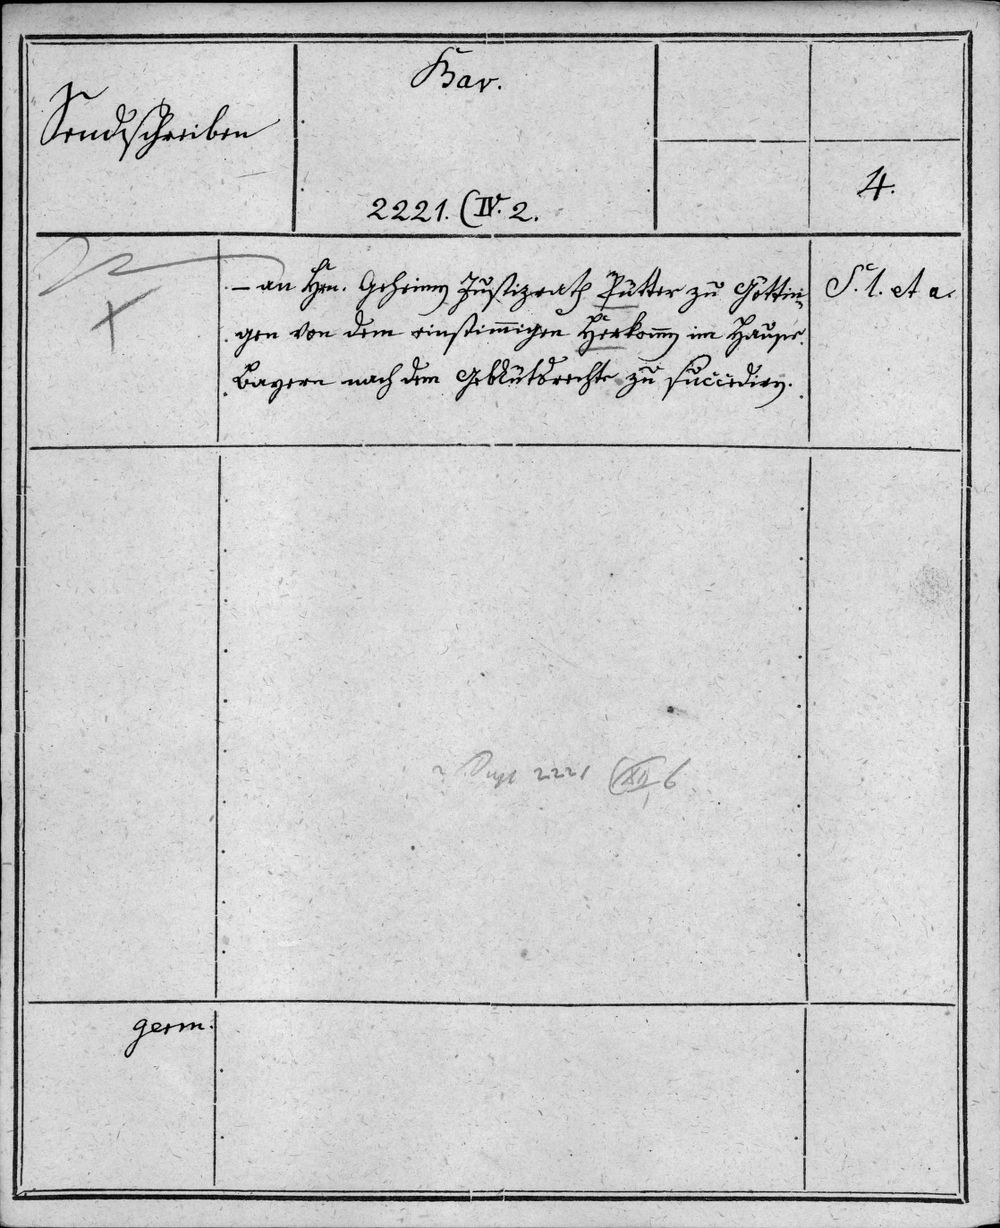 Sendschreiben
Bav.
2221. (IV. 2.
4.
– an Hrn. Geheimen Justizrath Pütter zu Göttin-
gen von dem einstimmigen Herkomen im Hause
Bayern nach dem Geblütsrechte zu succediren.
S. l. et a.
2221 (XII, 6
germ.